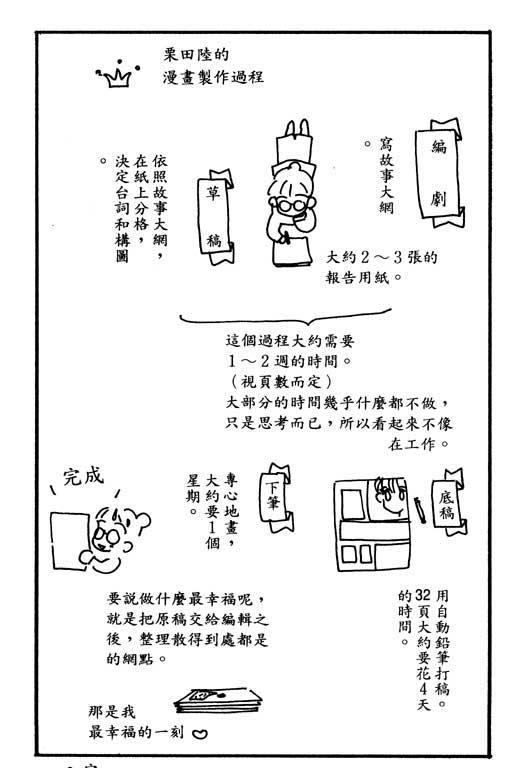 栗田陸的
漫畫製作過程
編劇
寫故事大網
。
大約2～3張的
報告用紙。
草稿
依照故事大網，
在紙上分格，
決定台詞和構圖
。
這個過程大約需要
1～2週的時間。
（視頁數而定）
大部分的時間幾乎什麼都不做，
只是思考而已，所以看起來不像
在工作。
底稿
用自動鉛筆打稿。
32頁大約要花4天
的時間。
下筆
專心地畫，
大約要1個
星期。
完成
要說做什麼最幸福呢，
就是把原稿交給編輯之
後，整理散得到處都是
的網點。
那是我
最幸福的一刻